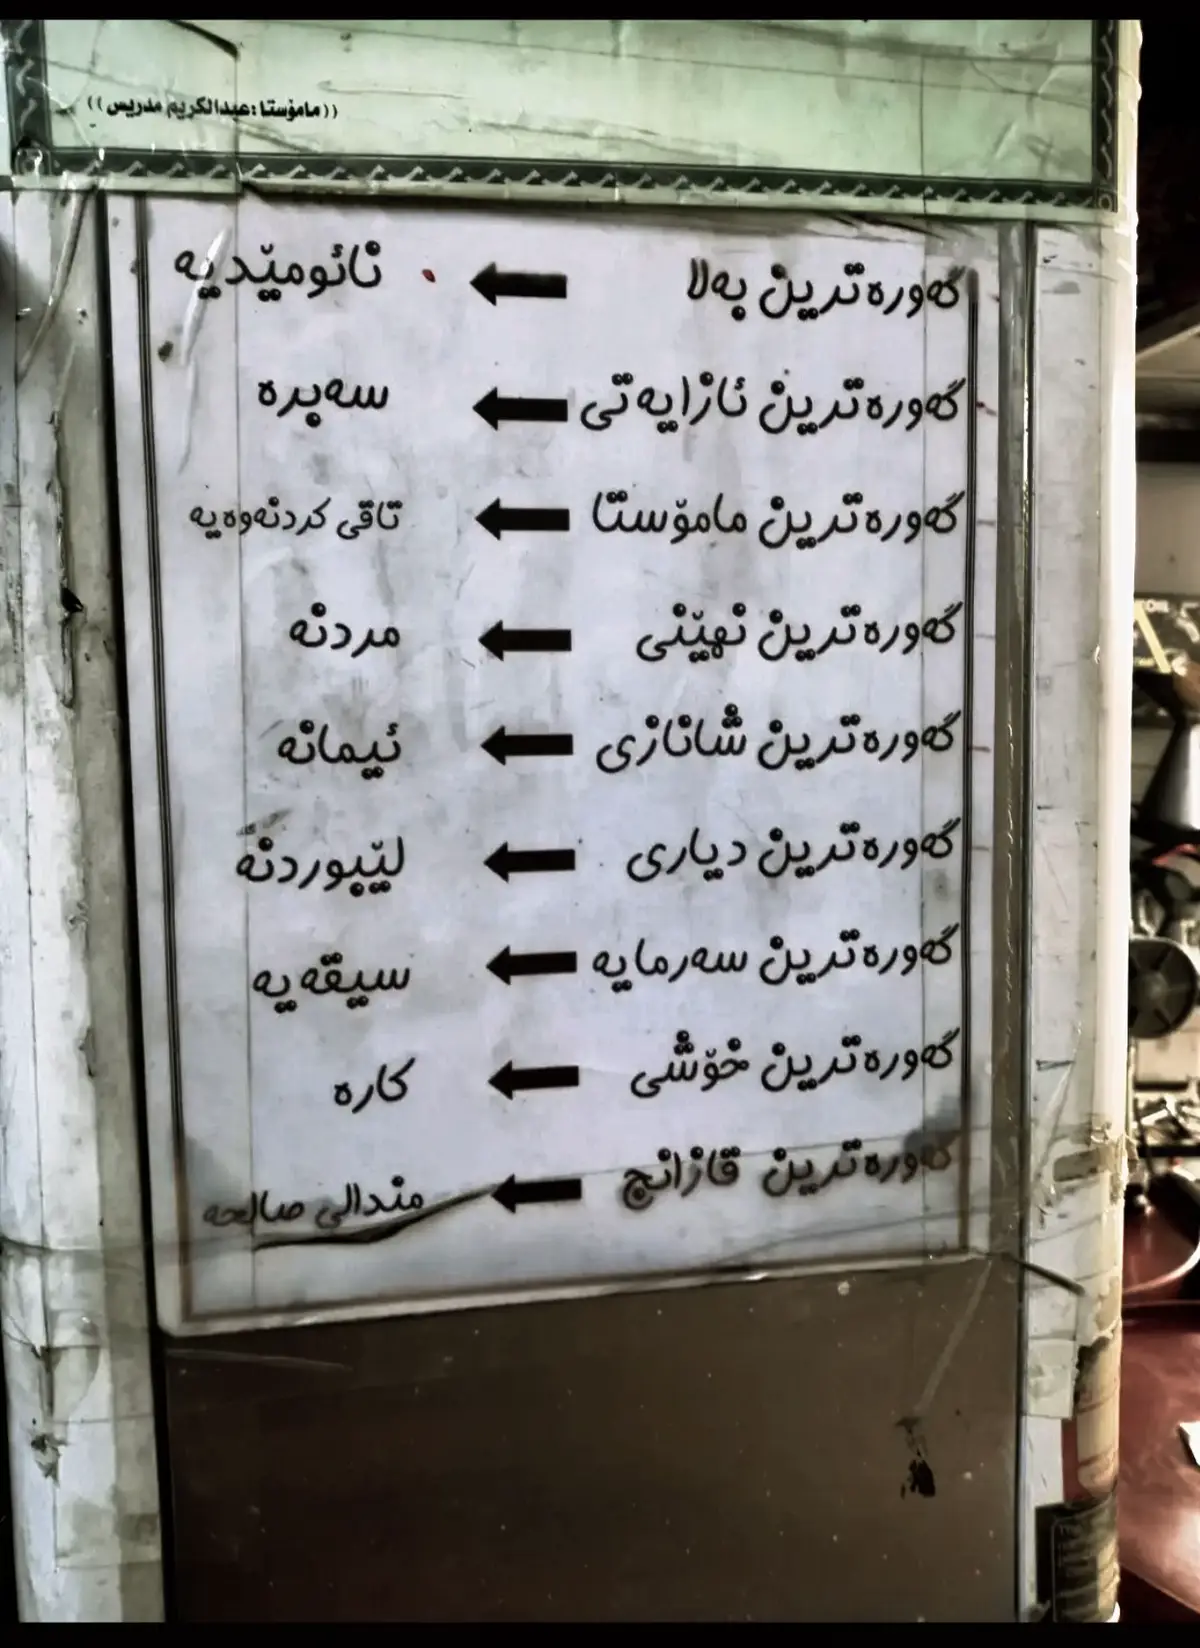 ((مامۆستا:عبدالکریم مدریس))
گەورەترین بەلا ← نائومێدیە
گەورەترین ئازایەتی ← سەبرە
گەورەترین مامۆستا ← تاقی کردنەوەیە
گەورەترین نهێنی ← مردنە
گەورەترین شانازی ← ئیمانە
گەورەترین دیاری ← لێبوردنە
گەورەترین سەرمایە ← سیقەیە
گەورەترین خۆشی ← کارە
گەورەترین قازانج ← مندالی صالحە